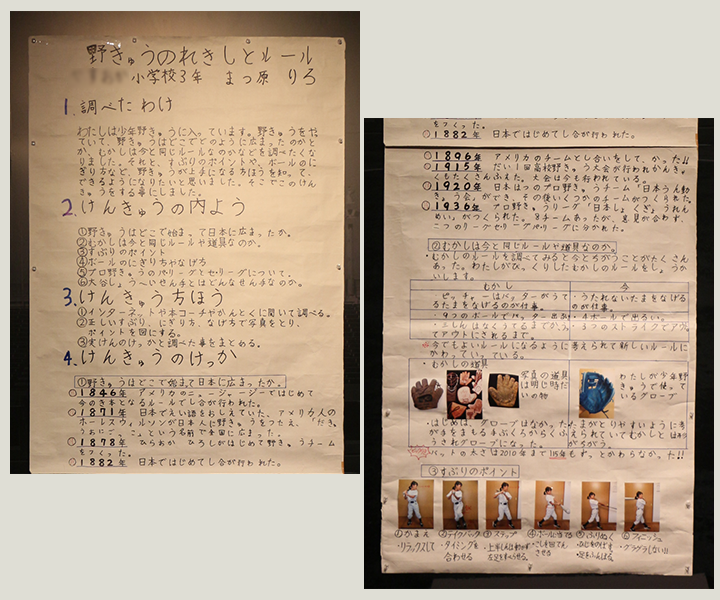 野きゅうのれきしとルール
小学校3年 まつ原 りろ
1.調べたわけ
わたしは少年野きゅうに入っています。野きゅうをや
ていて、野きゅうはどこでどのように広まったのかと
か、むかしは今と同じルールなのかなどを調べたくな
りました。それと、すぶりのポイントや、ボールのに
ぎり方など、野きゅうが上手になる方ほうを知って、
できるようになりたいと思いました。そこでこのけん
きゅうをする事にしました。
2.けんきゅうの内よう
①野きゅうはどこで始まって日本に広まったか。
②むかしは今と同じルールや道具なのか。
③すぶりのポイント
④ボールのにぎりちやなげろ
⑤プロ野きゅうのパリーグとセリーグについて。
⑥大谷しょうへいせん手とはどんなせん手なのか。
3.けんきゅうちほう
①インターネットや本コーチやかんとくに聞いて調べる。
②正しいすぶり、にぎり方、なげ方で写真をとり、
ポイントを図にする。
③実けんのけっかと調べた事をまとめる。
4.けんきゅうのけっか
①野きゅうはどこで始まって日本に広まったか。
○1846年 アメリカのニュージャージーではじめて
今のき本となるルールでし合が行われた。
○1871年 日本でえい語をおしえていた、アメリカ人の
ホーレスウィルソンが日本人に野きゅうをつたえ、「だき
ゅうおにごっこ」という名前で全国に広まった。
○1878年 ひらおか ひろしがはじめて野きゅうチーム
をつくった。
○1882年 日本ではじめてし合が行われた。
をつくった。
○1882年 日本ではじめてし合が行われた。
○1896年 アメリカのチームとし合いをして、かった!!
○1915年 だい1回高校野きゅう大会が行われかんき
ゃくもたくさんふえた。大会は今も行われている。
○1920年 日本はつのプロ野きゅうチーム「日本うん動
きょう会」ができ、その後いくつかのチームがつくられた。
○1936年 プロ野きゅうリーグ「日本しょくぎょうれん
めい」がつくられた。8チームあったが、意見が合わず、
二つのリーグセリーグパリーグに分かれた。
②むかしは今と同じルールや道具なのか。
・むかしのルールを調べてみると今とちがうことがたくさん
あった。わたしがびっくりしたむかしのルールをしょうか
いします。
むかし 今
・ピッチャーはバッターがうて
るたまをなげるのが仕事。
・うたれないたまをなげる
のが仕事。
・9つのボールでバッター出るい
・4ボールで出るい。
・三しんはなくうてるまでか、
アウトにされるまで。
・3つのストライクでアウト
今でもよいルールになるように考えられて新しいルールに
かわっていっている。
・むかしの道具
写真の道具
は明じ時だ
いの物
わたしが少年野
きゅうで使って
いるグローブ
・はじめは、グローブはなかった
・たまがとりやすいように考
えられていてむかしとは形
がちがう。
うされグローブになった。
バットの太さは2010年まで115年もずっとかわらなかった!!
③すぶりのポイント
①かまえ
・リラックスして
②テイクバック
・タイミングを
合わせる
③ステップ
・上半しんは動かず
左足をすべらせる。
④ボールに当てる
・こしを回てん
させる
⑤ふりぬく
・ひじをのばす
・足をふんばる。
⑥フィニッシュ
・グラグラしない!!